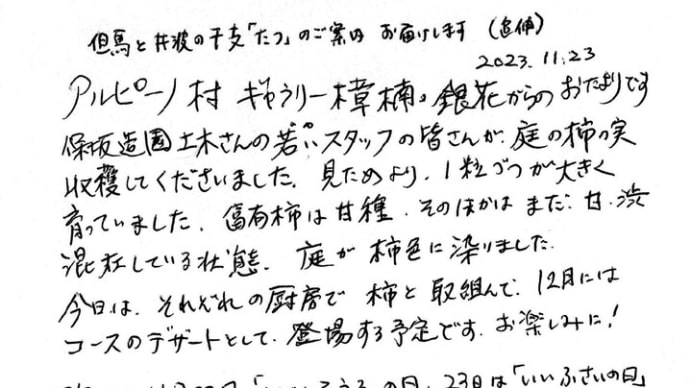 但馬と井波の干支「たつ」のご案内 お届けします (追伸)
2023.11.23
アルピーノ村 ギャラリー樟楠。銀花からの おたよりです
保坂造園土木さんの若いスタッフの皆さんが、庭の柿の実
収穫してくださいました。見ためより、1粒づつが大きく
育っていました。富有柿は甘種、そのほかは まだ、甘、渋
混在している状態。庭が 柿色に染りました。
今日は、それぞれの厨房で 柿と 取組んで、12月には
コースのデザートとして、登場する予定です。お楽しみに!
の日、23日は「いいふさいの日」